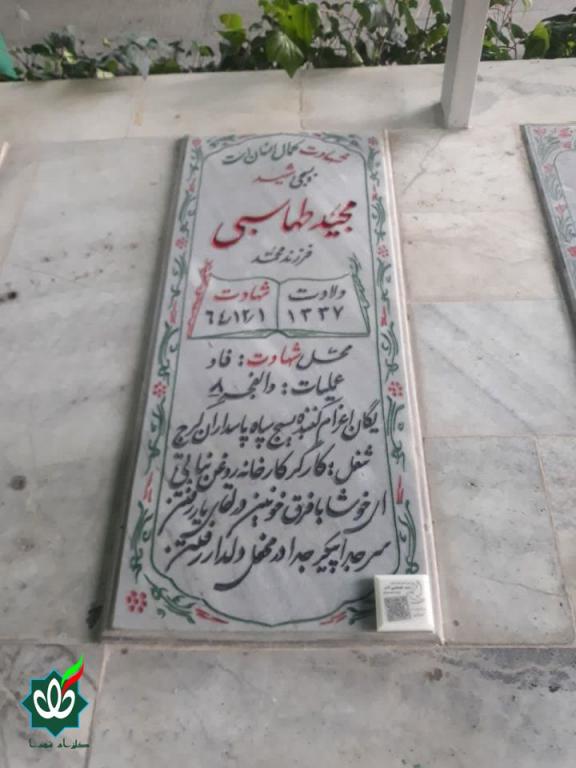 شهادت کمال انسان است
بسیجی شهید
مجید طهماسبی
فرزند محمد
ولادت
۱۳۳۷
شهادت
۶۴/۱۲/۱
محل شهادت: فاو
عملیات: والفجر ۸
یگان اعزام کننده بسیج سپاه پاسداران کرج
شغل: کارگر کارخانه روغن نباتی
ای خوشا با فرق خونین در لقای یار رفتن
سر جدا پیکر جدا در محفل دلدار رفتن
گلزار شهدا